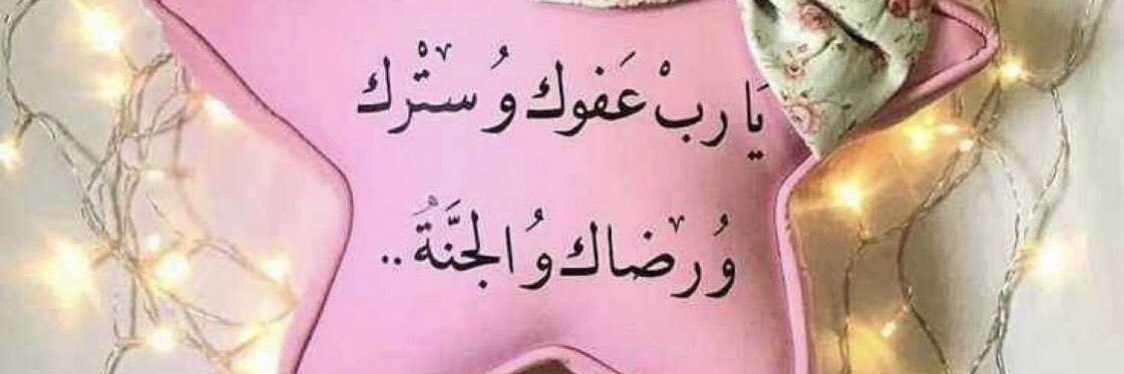 يَا ربْ عَفوك وُ ستْرك
وُ رضاك وُ الجنَّةَ ..